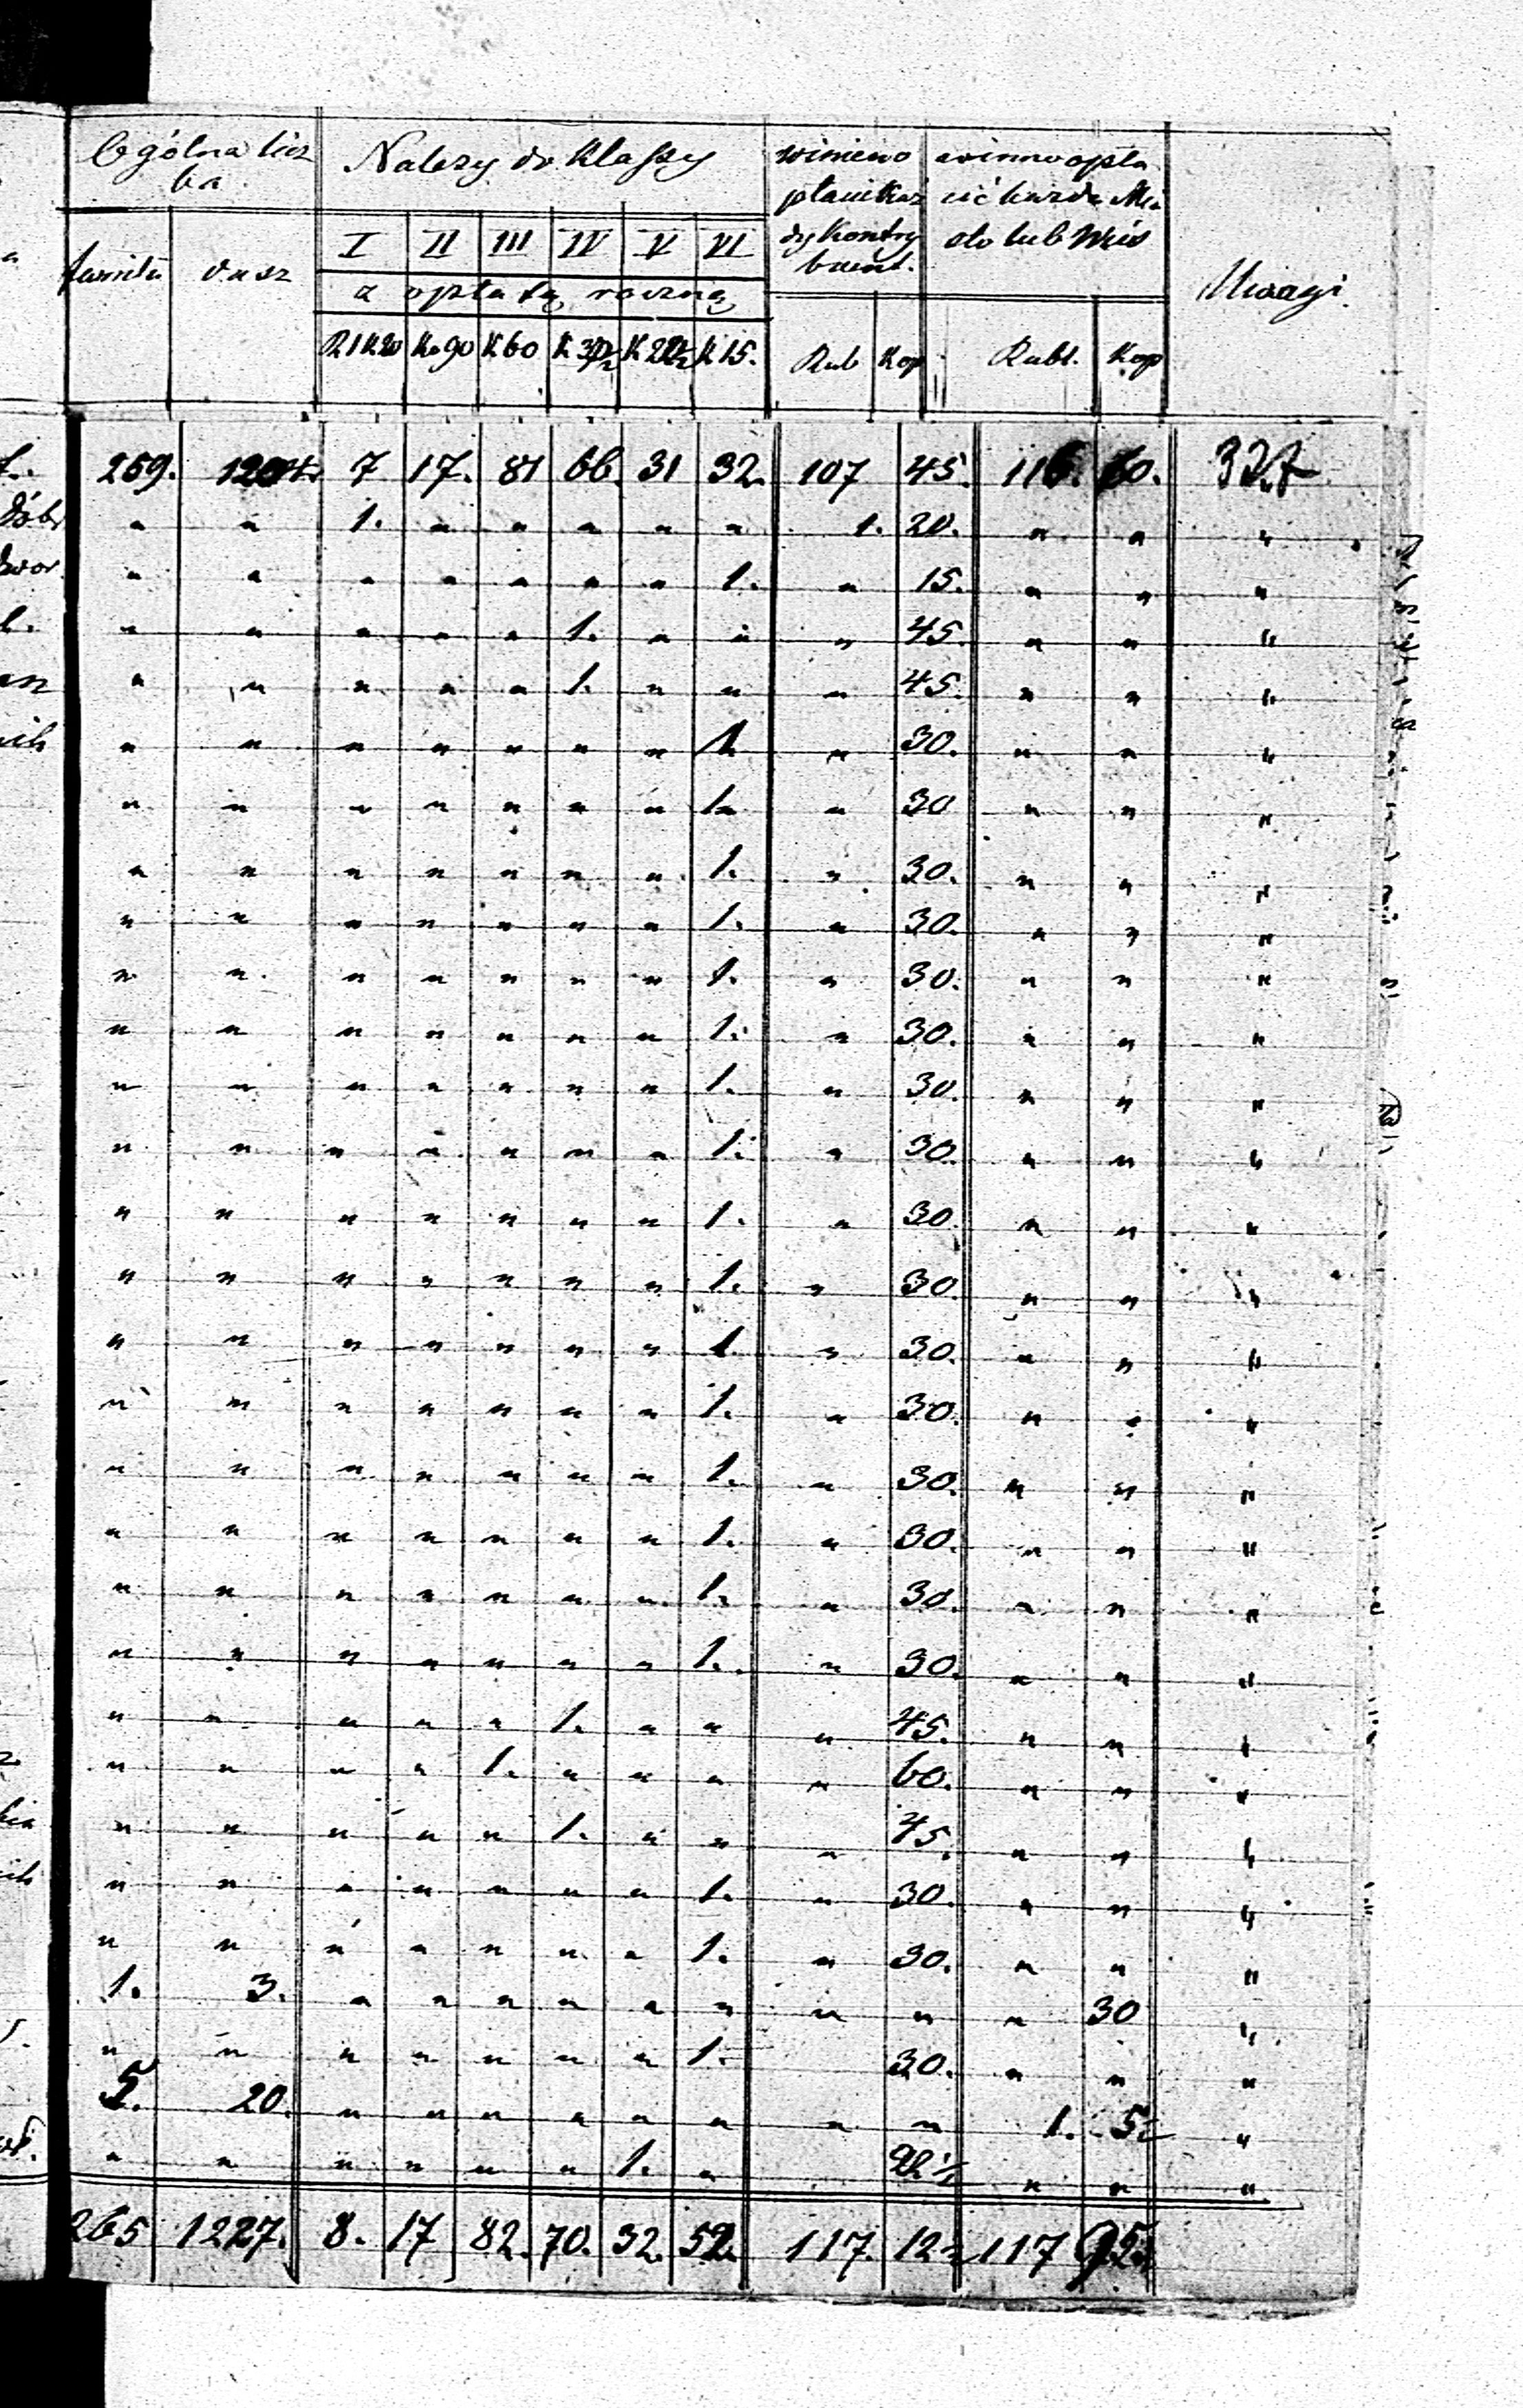 Ogólna licz Należy do Klassy winien o winno opła
ba płacić każ cić każde Mia
I II III IV V VI dy Kontry sto lub Wieś
familii dusz buent. Uwagi.
z opłatą roczną
R1 K20 Ko 90 K 60 K 15. Rub Kop Rubl. Kop
259. 1204. 7 17. 81 66. 31 32. 107 45. 116. 60. 327
dóbr " " 1. " " " " " 1. 20. " " "
dwor. " " " " " " " 1. " 15. " " "
" " " " " 1. " " " 45. " " "
" " " " " 1. " " " 45. " " "
" " " " " " " 1. " 30. " " "
" " " " " " " 1. " 30 " " "
" " " " " " " 1. " 30. " " "
" " " " " " " 1. " 30. " " "
" " " " " " " 1. " 30. " " "
" " " " " " " 1. " 30. " " "
" " " " " " " 1. " 30. " " "
" " " " " " " 1. " 30. " " "
" " " " " " " 1. " 30. " " "
" " " " " " " 1. " 30. " " "
" " " " " " " 1. " 30. " " "
" " " " " " " 1. " 30. " " "
" " " " " " " 1. " 30. " " "
" " " " " " " 1. " 30. " " "
" " " " " " " 1. " 30. " " "
" " " " " " " 1. " 30. " " "
" " " " " 1. " " " 45. " " "
" " " " 1. " " " " 60. " " "
" " " " " 1. " " " 45. " " "
" " " " " " " 1. " 30. " " "
" " " " " " " 1. " 30. " " "
1. 3. " " " " " " " " " 30 "
" " " " " " " 1. 30. " " "
5. 20. " " " " " " " " 1. 5. "
" " " " " " 1. " 22½ " " "
265 1227. 8. 17 82. 70. 32. 52. 117. 12 117 95.